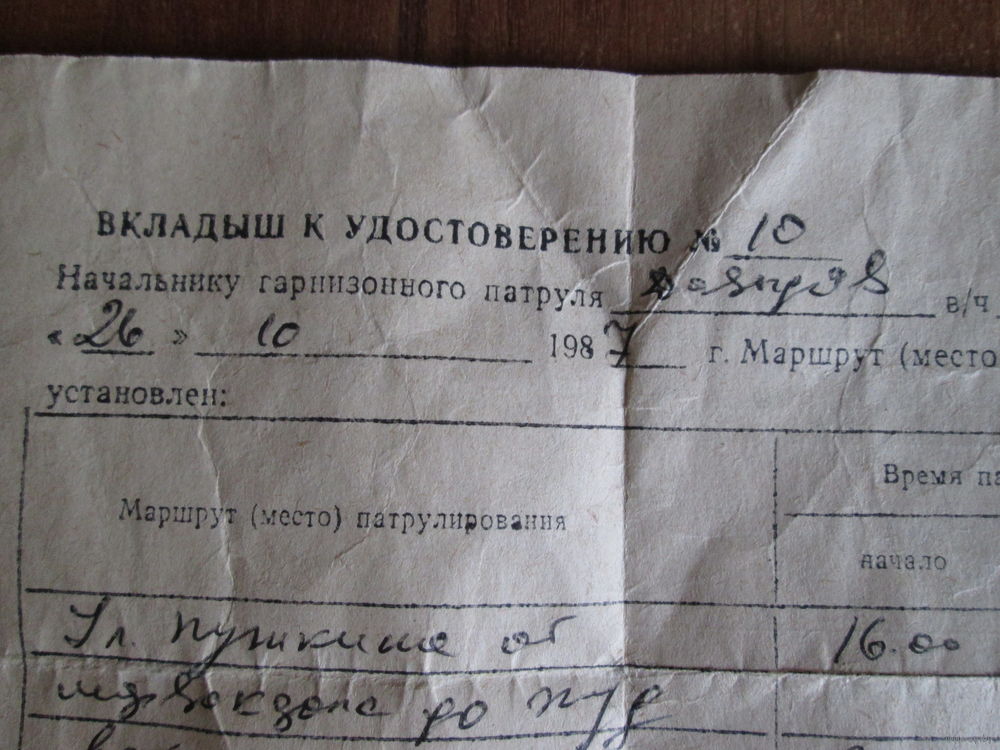 ВКЛАДЫШ К УДОСТОВЕРЕНИЮ № 10
Начальнику гарнизонного патруля в/ч
« 26 » 10 1987 г. Маршрут (место
установлен:
Маршрут (место) патрулирования
Время па
начало
Ул. Пушкина от 16.00
до